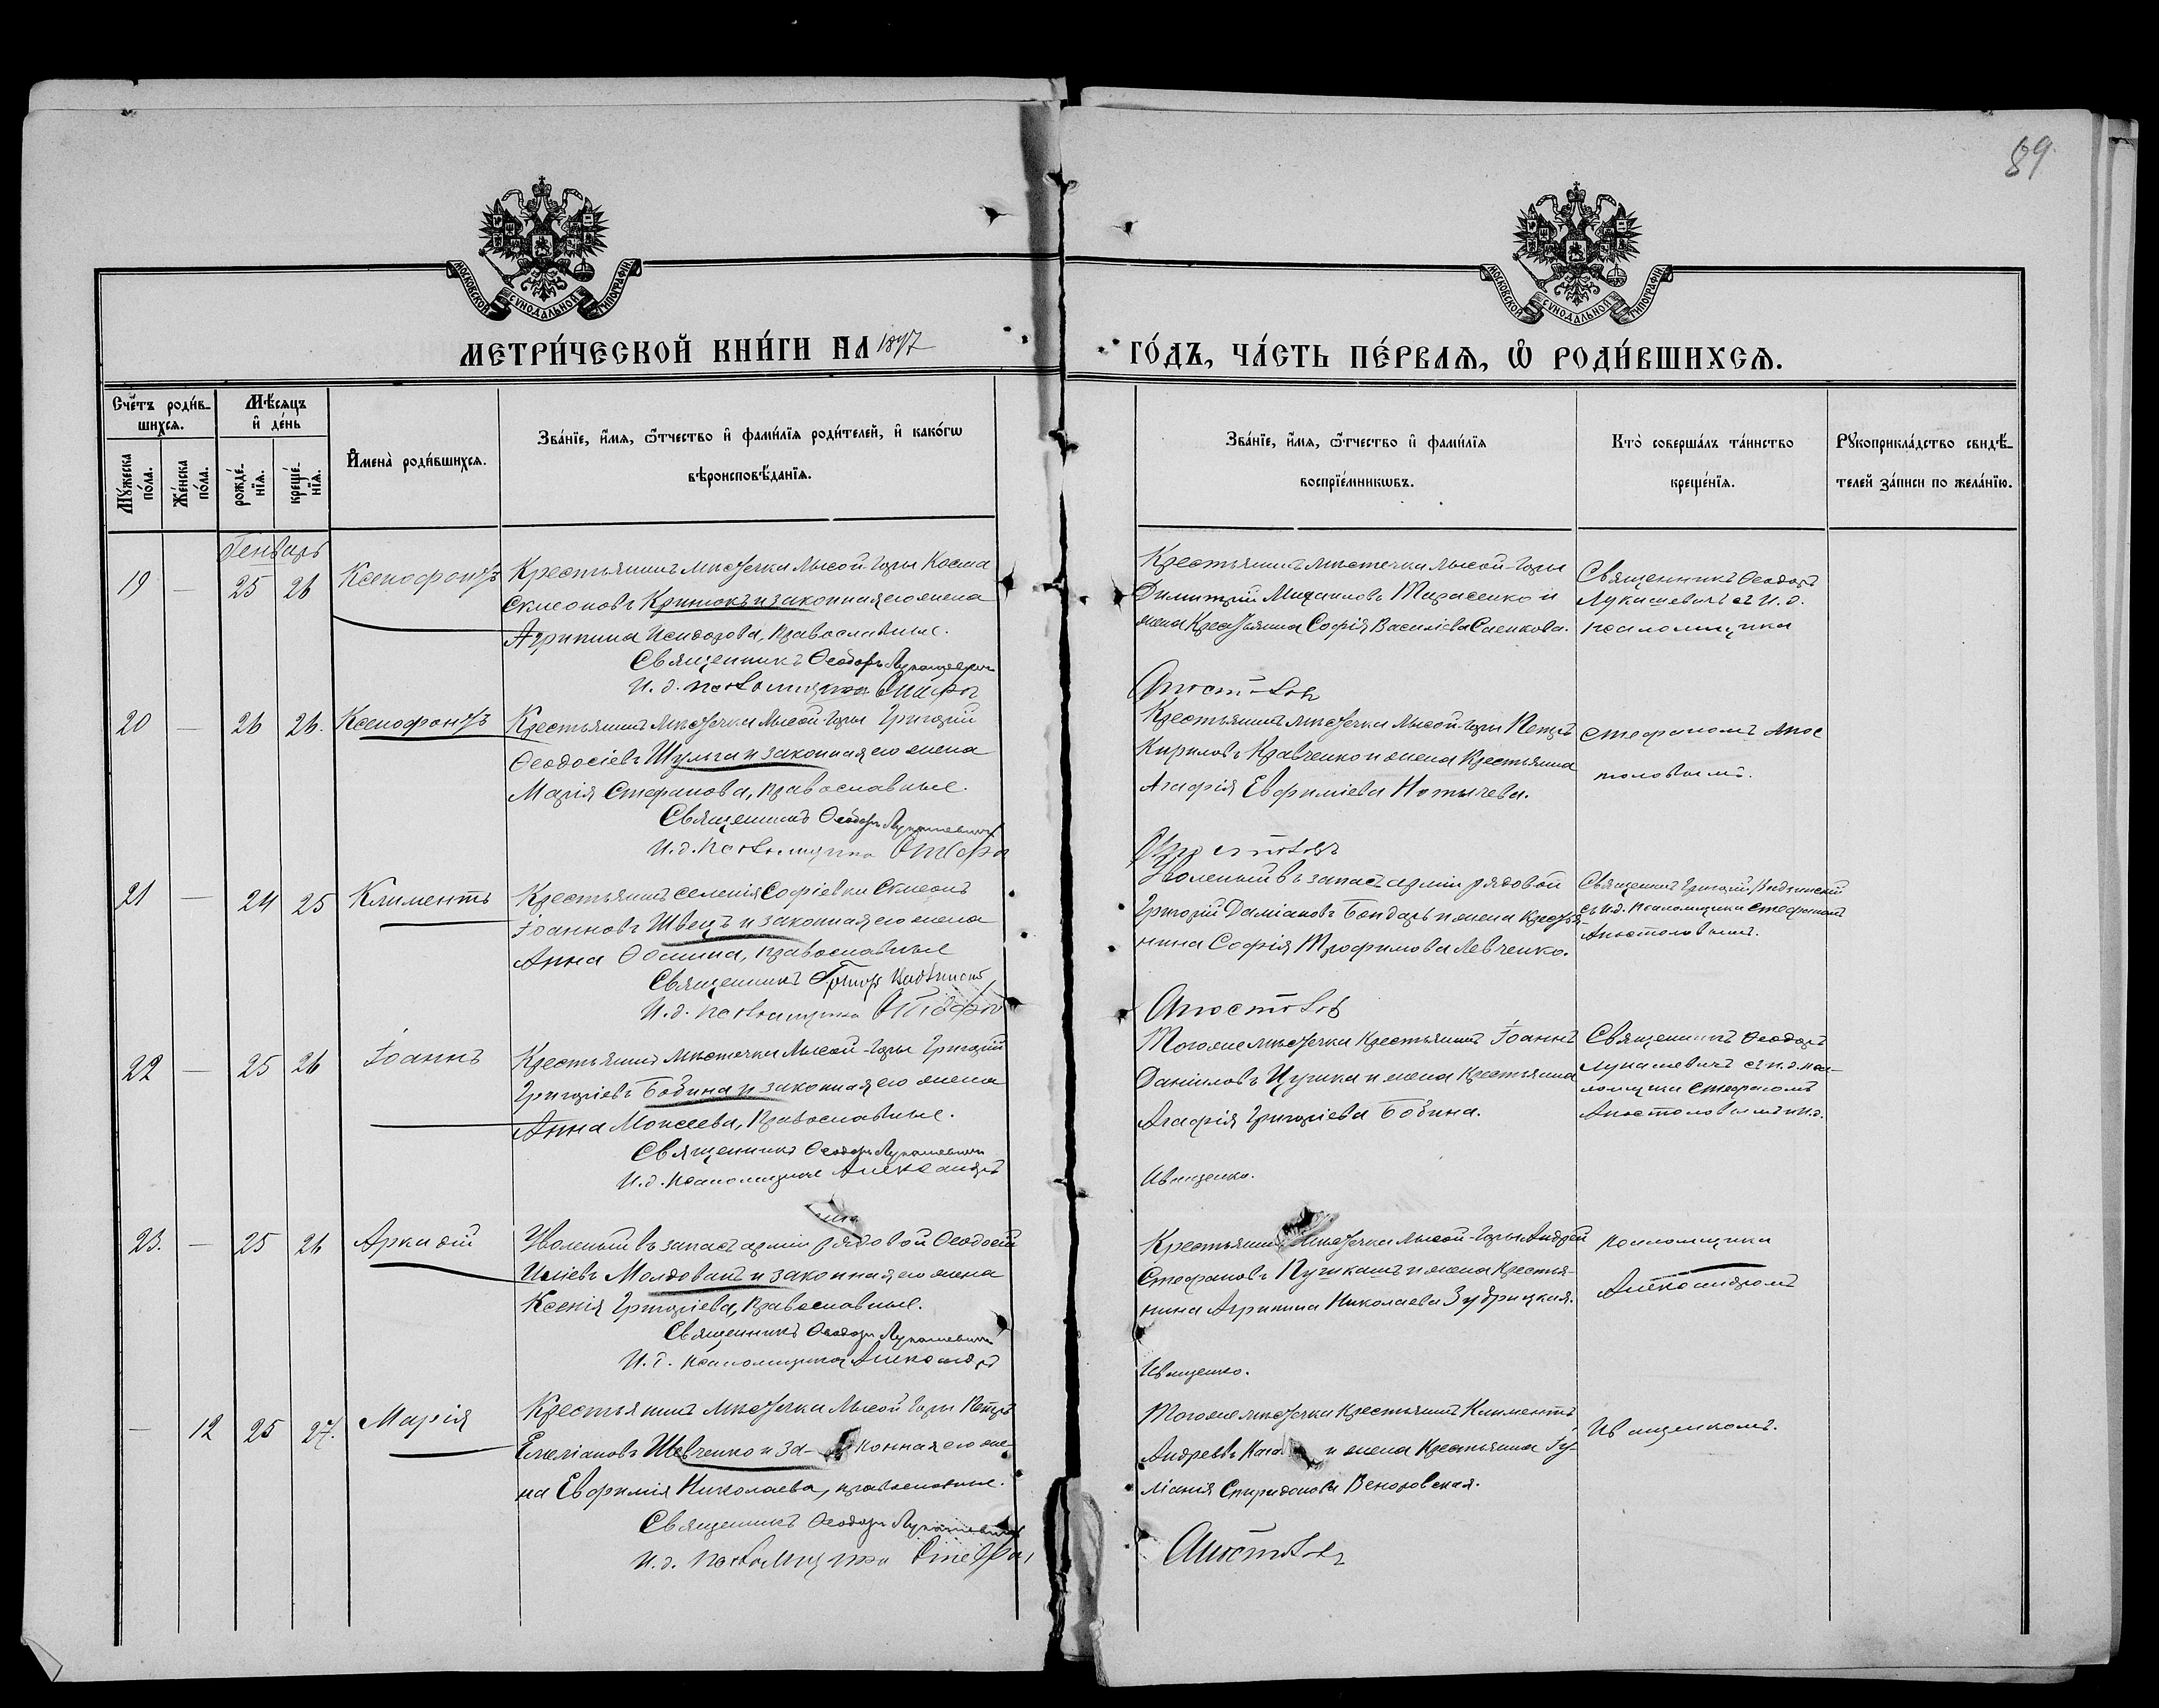 89
МОСКОВСКОЙ СѴНОДАЛЬНОЙ ТИПОГРАФІИ
МОСКОВСКОЙ СѴНОДАЛЬНОЙ ТИПОГРАФІИ
МЕТРИ́ЧЕСКОЙ КНИ́ГИ НА 1897 ГО́ДЪ, ЧА́СТЬ ПЕ́РВАѦ, Ѡ РОДИ́ВШИХСѦ.
Счетъ роди́в-
шихсѧ.
Мѣсѧцъ
и де́нь
Мꙋжеска по́ла.
Же́нска по́ла.
рожде́нїѧ.
креще́нїѧ.
Имена̀ роди́вшихсѧ.
Зва́нїе, и́мѧ, ѻтчество и фами́лїѧ роди́телей, и како́гѡ
вѣроисповѣ́данїѧ.
Зва́нїе, и́мѧ, ѻтчество и фами́лїѧ
воспрїе́мникѡвъ.
Кто̀ соверша́лъ та́инство
креще́нїѧ.
Рꙋкоприкла́дство свидѣ́-
телей за́писи по жела́нїю.
Генварь
19 — 25 26 Ксенофонтъ
Крестьянинъ мѣстечка Лысой-Горы Косма
Симеоновъ Кринюкъ и законная его жена
Агрипина Исидорова, православные.
Священникъ Ѳеодоръ Лукашевичъ
И. д. псаломщика Стефанъ
Крестьянинъ мѣстечка Лысой-Горы
Димитрій Михаиловъ Тарасенко и
жена крестьянина Софія Василіева Саенкова.
Апостоловъ
Священникъ Ѳеодоръ
Лукашевичъ съ И. д.
псаломщика
20 — 26 26. Ксенофонтъ
Крестьянинъ мѣстечка Лысой-Горы Григорій
Ѳеодосіевъ Шульга и законная его жена
Марія Стефанова, православные.
Священникъ Ѳеодоръ Лукашевичъ
И. д. псаломщика Стефанъ
Крестьянинъ мѣстечка Лысой-Горы Петръ
Кириловъ Кравченко и жена крестьянина
Агафія Евфиміева
Апостоловъ
Стефаномъ Апос
толовымъ.
21 — 24 25 Климентъ
Крестьянинъ селенія Софіевки Симеонъ
Іоанновъ Швецъ и законная его жена
Анна Ѳомина, православные
Священникъ
И. д. псаломщика Стефанъ
Уволеный въ запасъ арміи рядовой
Григорій Даміановъ Бондарь и жена крестья-
нина Софія Трофимова Левченко.
Апостоловъ
Священникъ Григорій
съ И.д. псаломщика Стефаномъ
Апостоловымъ.
22 — 25 26 Іоаннъ
Крестьянинъ мѣстечка Лысой-Горы Григорій
Григоріевъ Бабина и законная его жена
Анна Моисеева, православные.
Священникъ Ѳеодоръ Лукашевичъ
И. д. псаломщика Александръ
Тогоже мѣстечка крестьянинъ Іоаннъ
Даніиловъ Цушка и жена крестьянина
Агафія Григоріева Бабина.
Иващенко.
Священникъ Ѳеодоръ
Лукашевичъ съ и.д. пса-
ломщика Стефаномъ
Апостоловымъ и И.д.
23. — 25 26 Аркадій
Уволеный въ запасъ арміи рядовой Ѳеодосій
Иліевъ Молдованъ и законная его жена
Ксенія Григоріева, православные.
Священникъ Ѳеодоръ Лукашевичъ
И. д. псаломщика Александръ
Крестьянинъ мѣстечка Лысой-Горы Андрей
Стефановъ Пушкашъ и жена крестья-
нина Агрипина Николаева Зубрицкая.
Иващенко.
псаломщика
Александромъ
— 12 25 27. Марія
Крестьянинъ мѣстечка Лысой Горы Петръ
Емеліановъ Шевченко и за- конная его же-
на Евфимія Николаева, православные.
Священникъ Ѳеодоръ Лукашевичъ
И. д. псаломщика Стефанъ
Тогоже мѣстечка крестьянинъ Климентъ
Андреевъ и жена крестьянина Іу-
ліанія Спиридонова
Апостоловъ
Иващенкомъ.